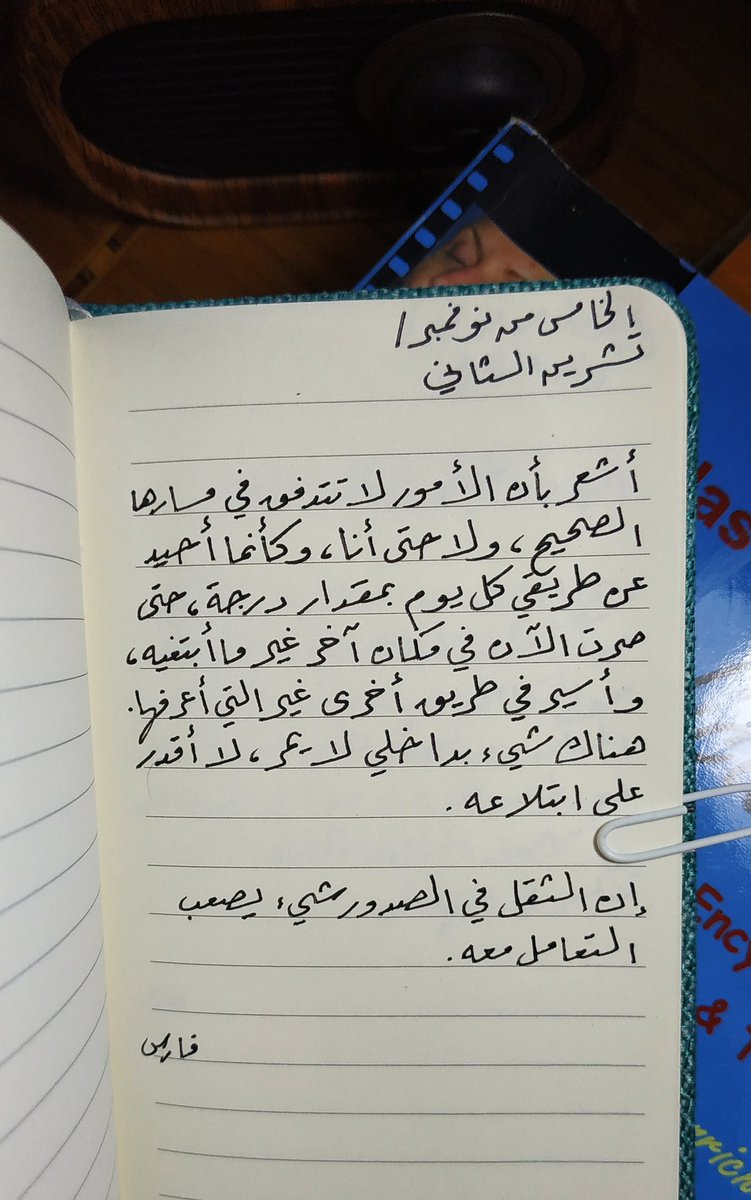 الخامس من نوفمبر /
تشرين الثاني
أشعر بأن الأمور لا تتدفق في مسارها
الصحيح، ولا حتى أنا، وكأنما أحيد
عن طريقي كل يوم بمقدار درجة، حتى
صرت الآن في مكان آخر غير ما أبتغيه،
وأسير في طريق أخرى غير التي أعرفها.
هناك شيء بداخلي لا يمر، لا أقدر
على ابتلاعه.
إن الثقل في الصدور شيء يصعب
التعامل معه.
فارس
las
Ency
&